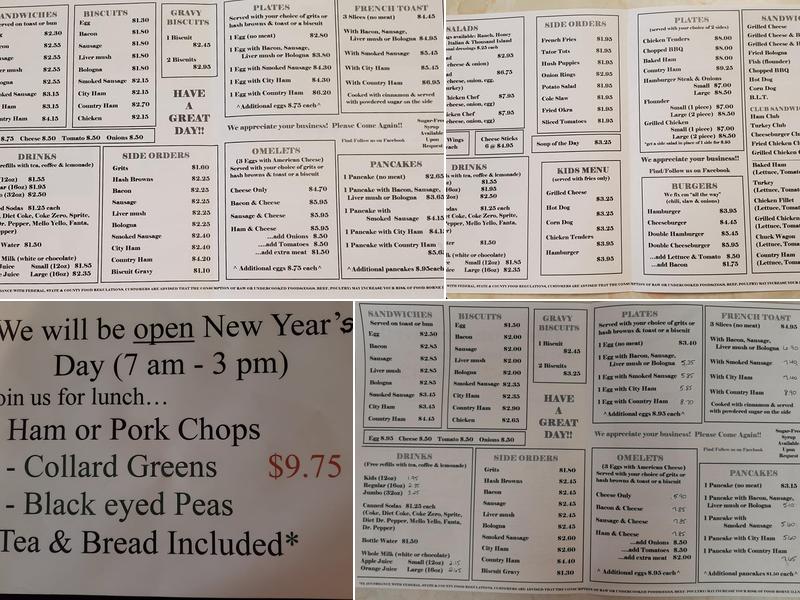 SANDWICHES
Served on toast or bun
$2.30
$2.55
$2.55
$2.55
$2.55
$3.15
$3.15
$4.15
$.75 Cheese $.50 Tomato $.50 Onions $.50
BISCUITS
Egg $1.30
Bacon $1.80
Sausage $1.80
Liver mush $1.80
Bologna $1.80
Smoked Sausage $2.15
City Ham $2.15
Country Ham $2.70
Chicken $2.15
GRAVY
BISCUITS
1 Biscuit
$2.45
2 Biscuits
$2.95
HAVE
A
GREAT
DAY!!
PLATES
Served with your choice of grits or
hash browns & toast or a biscuit
1 Egg (no meat) $2.80
1 Egg with Bacon, Sausage,
Liver mush or Bologna $3.80
1 Egg with Smoked Sausage $4.30
1 Egg with City Ham $4.30
1 Egg with Country Ham $6.20
^Additional eggs $.75 each^
FRENCH TOAST
3 Slices (no meat) $4.45
With Bacon, Sausage,
Liver mush or Bologna $4.95
With Smoked Sausage $5.45
With City Ham $5.45
With Country Ham $6.95
Cooked with cinnamon & served
with powdered sugar on the side
We appreciate your business! Please Come Again!!
Find/Follow us on Facebook
Sugar-Free
Syrup
Available
Upon
Request
DRINKS
refills with tea, coffee & lemonade)
(12oz) $1.55
(16oz) $1.95
(32oz) $2.50
Sodas $1.25 each
Diet Coke, Coke Zero, Sprite,
Dr. Pepper, Mello Yello, Fanta,
Water $1.50
Milk (white or chocolate)
Juice Small (12oz) $1.85
Juice Large (16oz) $2.35
SIDE ORDERS
Grits $1.60
Hash Browns $2.25
Bacon $2.25
Sausage $2.25
Liver mush $2.25
Bologna $2.25
Smoked Sausage $2.40
City Ham $2.40
Country Ham $4.20
Biscuit Gravy $1.10
OMELETS
(3 Eggs with American Cheese)
Served with your choice of grits
hash browns & toast or a biscuit
Cheese Only $4.70
Bacon & Cheese $5.95
Sausage & Cheese $5.95
Ham & Cheese $5.95
...add Onions $.50
...add Tomatoes $.50
...add extra meat $1.50
^Additional eggs $.75 each^
PANCAKES
1 Pancake (no meat) $2.65
1 Pancake with Bacon, Sausage,
Liver mush or Bologna $3.65
1 Pancake with
Smoked Sausage $4.15
1 Pancake with City Ham
1 Pancake with Country Ham
^Additional pancakes $.95 each
SALADS
Chicken Stripes
Wings
Cheese Sticks
6 @ $4.95
SIDE ORDERS
French Fries $1.95
Tator Tots $1.95
Hush Puppies $1.95
Onion Rings $2.95
Potato Salad $1.95
Cole Slaw $1.95
Fried Okra $1.95
Sliced Tomatoes $1.95
Soup of the Day $3.25
KIDS MENU
(served with fries only)
Grilled Cheese
$3.25
Hot Dog
$3.25
Corn Dog
$3.25
Chicken Tenders
$3.95
Hamburger
$3.95
PLATES
Chicken Tenders $8.00
Chopped BBQ $8.00
Baked Ham $8.00
Country Ham $9.25
Hamburger Steak & Onions
Small $7.00
Large $8.50
Flounder
Small (1 piece) $7.00
Large (2 pieces) $8.50
Grilled Chicken
Small (1 piece) $7.00
Large (2 pieces) $8.50
We appreciate your business!!
Find/Follow us on Facebook
BURGERS
We fix em "all the way"
(chili, slaw & onions)
Hamburger $3.95
Cheeseburger $4.45
Double Hamburger $5.45
Double Cheeseburger $5.95
...add Lettuce & Tomato $.50
...add Bacon $1.75
Grilled Cheese
Fried Bologna
Fish (flounder)
Chopped BBQ
Hot Dog
Corn Dog
B.L.T.
CLUB SANDWICH
Ham Club
Turkey Club
Baked Ham
Turkey
Chuck Wagon
We will be open New Year's
Day (7 am - 3 pm)
oin us for lunch…
Ham or Pork Chops
- Collard Greens $9.75
- Black eyed Peas
Tea & Bread Included*
SANDWICHES
Served on toast or bun
Egg $2.50
Bacon $2.85
Sausage $2.85
Liver mush $2.85
Bologna $2.85
Smoked Sausage $3.45
City Ham $3.45
Country Ham $4.45
Egg $.95 Cheese $.50 Tomato $.50 Onions $.50
BISCUITS
Egg $1.50
Bacon $2.00
Sausage $2.00
Liver mush $2.00
Bologna $2.00
Smoked Sausage $2.35
City Ham $2.35
Country Ham $2.90
Chicken $2.65
GRAVY
BISCUITS
1 Biscuit
$2.45
2 Biscuits
$3.25
HAVE
A
GREAT
DAY!!
PLATES
Served with your choice of grits or
hash browns & toast or a biscuit
1 Egg (no meat) $3.40
1 Egg with Bacon, Sausage,
Liver mush or Bologna 5.35
1 Egg with Smoked Sausage 5.85
1 Egg with City Ham 5.85
1 Egg with Country Ham 8.70
^Additional eggs $.95 each^
FRENCH TOAST
3 Slices (no meat) $4.95
With Bacon, Sausage,
Liver mush or Bologna 6.90
With Smoked Sausage 7.40
With City Ham 7.40
With Country Ham 8.90
Cooked with cinnamon & served
with powdered sugar on the side
We appreciate your business! Please Come Again!!
Find/Follow us on Facebook
Sugar-Free
Syrup
Available
Upon
Request
DRINKS
(Free refills with tea, coffee & lemonade)
Kids (12oz) 1.95
Regular (16oz)
Jumbo (32oz) 3.25
Canned Sodas $1.25 each
(Coke, Diet Coke, Coke Zero, Sprite,
Diet Dr. Pepper, Mello Yello, Fanta,
Dr. Pepper)
Bottle Water $1.50
Whole Milk (white or chocolate)
Apple Juice Small (12oz) 2.15
Orange Juice Large (16oz) 2.65
SIDE ORDERS
Grits $1.80
Hash Browns $2.45
Bacon $2.45
Sausage $2.45
Liver mush $2.45
Bologna $2.45
Smoked Sausage $2.60
City Ham $2.60
Country Ham $4.40
Biscuit Gravy $1.30
OMELETS
(3 Eggs with American Cheese)
Served with your choice of grits
hash browns & toast or a biscuit
Cheese Only 5.90
Bacon & Cheese 7.85
Sausage & Cheese 7.85
Ham & Cheese 7.85
...add Onions $.50
...add Tomatoes $.50
...add extra meat $2.00
^Additional eggs $.95 each^
PANCAKES
1 Pancake (no meat) $3.15
1 Pancake with Bacon, Sausage,
Liver mush or Bologna 5.10
1 Pancake with
Smoked Sausage 5.60
1 Pancake with City Ham 5.60
1 Pancake with Country Ham
7.65
^Additional pancakes $1.50 each^